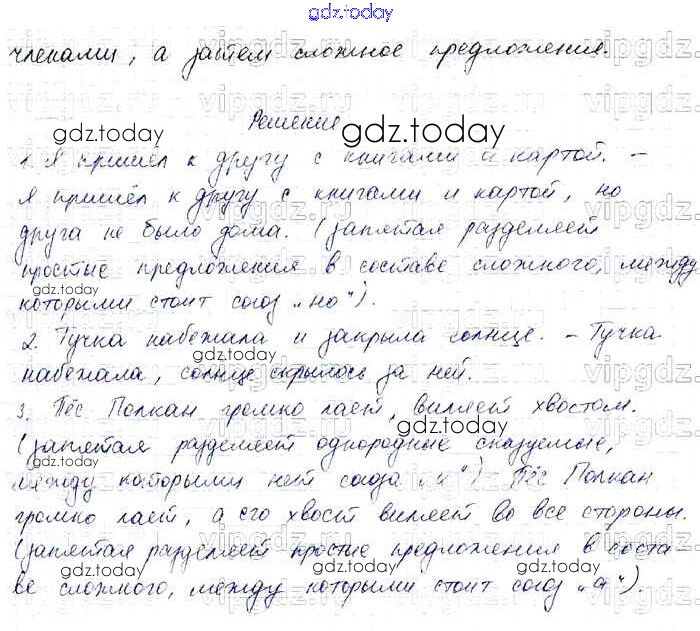 gdz.today
членами, а затем сложное предложения.
Решение
gdz.today
gdz.today
1. Я пришёл к другу с книгами и картой. –
Я пришёл к другу с книгами и картой, но
gdz.today
друга не было дома. (запятая разделяет
gdz.today
простые предложения в составе сложного, между
которыми стоит союз „но“).
2. Тучка набежала и закрыла солнце. – Тучка
gdz.today
набежала, солнце скрылось за ней.
gdz.today
3. Пёс Полкан громко лает, виляет хвостом.
(запятая разделяет однородные сказуемые,
gdz.today
между которыми нет союза „и“) – Пёс Полкан
громко лает, а его хвост виляет во все стороны.
gdz.today
(запятая разделяет простые предложения в соста-
ве сложного, между которыми стоит союз „а“).
gdz.today
gdz.today